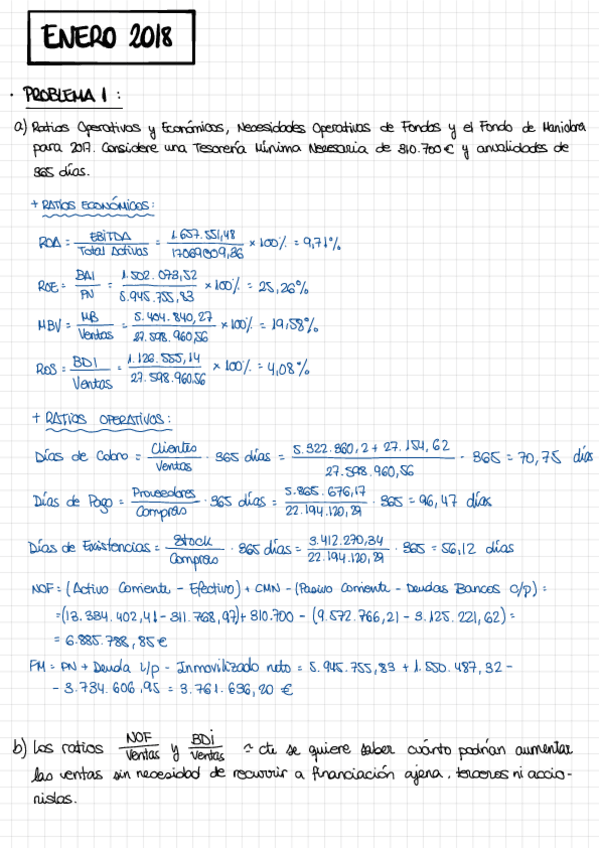 ENERO 2018
· PROBLEMA 1 :
a) Ratios Operativos y Económicos, Necesidades Operativas de Fondos y el Fondo de Maniobra
para 2017. Considere una Tesorería Mínima Necesaria de 310.700 € y anualidades de
365 días.
+ RATIOS ECONÓMICOS:
ROA = EBITDA / Total Activos = 1.657.551,48 / 17069009,36 × 100% = 9,71%
ROE = BAI / PN = 1.502.073,52 / 5.945.755,83 × 100% = 25,26%
MBV = MB / Ventas = 5.404.840,27 / 27.598.960,56 × 100% = 19,58%
ROS = BDI / Ventas = 1.126.555,14 / 27.598.960,56 × 100% = 4,08%
+ RATIOS OPERATIVOS:
Días de Cobro = Clientes / Ventas · 365 días = 5.322.860,2 + 27.154,62 / 27.598.960,56 · 365 = 70,75 días
Días de Pago = Proveedores / Compras · 365 días = 5.865.676,17 / 22.194.120,29 · 365 = 96,47 días
Días de Existencias = Stock / Compras · 365 días = 3.412.270,34 / 22.194.120,29 · 365 = 56,12 días
NOF = (Activo Corriente - Efectivo) + CMN - (Pasivo Corriente - Deudas Bancos c/p) =
=(13.334.402,41 - 311.768,97) + 310.700 - (9.572.766,21 - 3.125.221,62) =
= 6.885.788,85 €
FM = PN + Deuda l/p - Inmovilizado neto = 5.945.755,83 + 1.550.487,32 -
- 3.734.606,95 = 3.761.636,20 €
b) Los ratios NOF / Ventas y BDI / Ventas ≃ cte se quiere saber cuánto podrían aumentar
las ventas sin necesidad de recurrir a financiación ajena, terceros ni accio-
nistas.